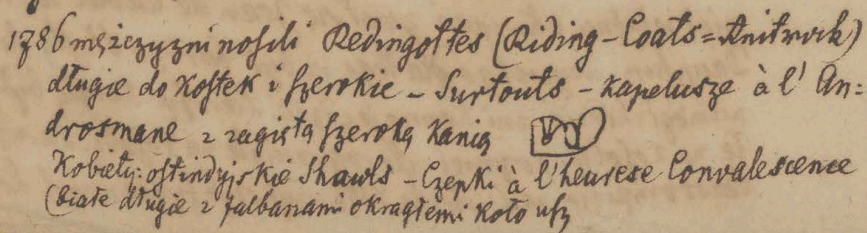 1786 mężczyzni nosili Redingottes (Riding-Coats=Knitrock)
długie do Kostek i szerokie – Surtouts – Kapelusze à l' An=
drosmane z zagiętą szeroką Kanią
Kobiety: ostindyjskie Shawls – Czepki à l'heurese Convalescence
(białe długie z falbanami okrągłemi koło usz